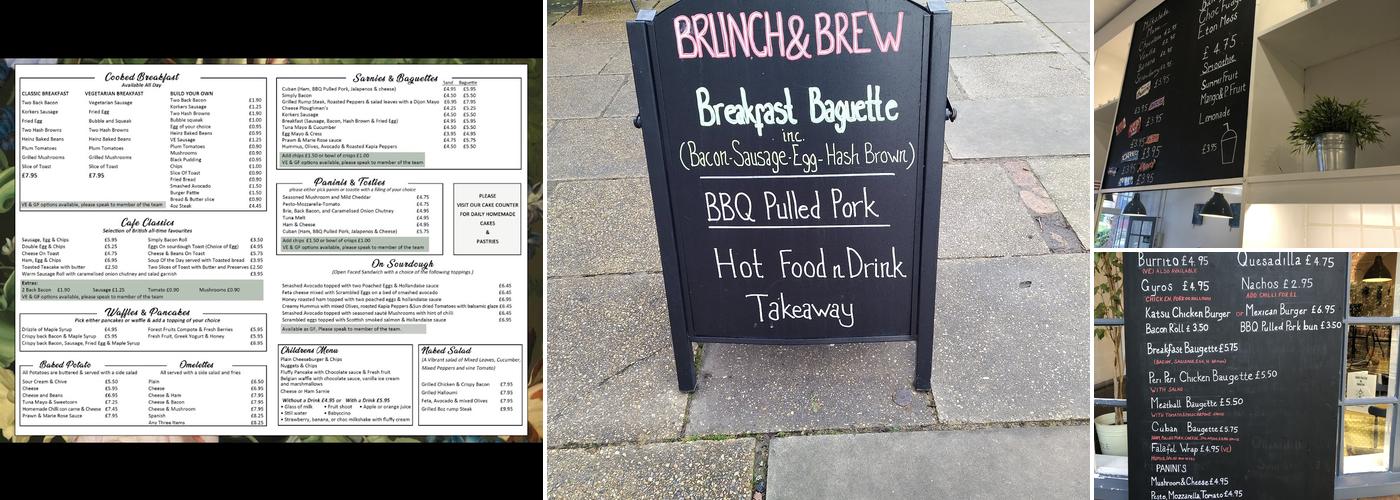 Cooked Breakfast
Available All Day
CLASSIC BREAKFAST
Two Back Bacon
Korkers Sausage
Fried Egg
Two Hash Browns
Heinz Baked Beans
Plum Tomatoes
Grilled Mushrooms
Slice of Toast
£7.95
VEGETARIAN BREAKFAST
Vegetarian Sausage
Fried Egg
Bubble and Squeak
Two Hash Browns
Heinz Baked Beans
Plum Tomatoes
Grilled Mushrooms
Slice of Toast
£7.95
BUILD YOUR OWN
Two Back Bacon £1.90
Korkers Sausage £1.25
Two Hash Browns £1.90
Bubble squeak £1.00
Egg of your choice £0.95
Heinz Baked Beans £0.95
VE Sausage £1.25
Plum Tomatoes £0.90
Mushrooms £0.90
Black Pudding £0.95
Chips £1.00
Slice Of Toast £0.90
Fried Bread £0.90
Smashed Avocado £1.50
Burger Pattie £1.50
Bread & Butter slice £0.90
4oz Steak £4.45
VE & GF options available, please speak to member of the team
Cafe Classics
Selection of British all-time favourites
Sausage, Egg & Chips £5.95
Double Egg & Chips £5.25
Cheese On Toast £4.75
Ham, Egg & Chips £6.95
Toasted Teacake with butter £2.50
Simply Bacon Roll £3.50
Eggs On sourdough Toast (Choice of Egg) £4.95
Cheese & Beans On Toast £5.75
Soup Of the Day served with Toasted bread £3.95
Two Slices of Toast with Butter and Preserves £2.50
Warm Sausage Roll with caramelised onion chutney and salad garnish £3.95
Extras:
2 Back Bacon £1.90 Sausage £1.25 Tomato £0.90 Mushrooms £0.90
VE & GF options available, please speak to member of the team
Waffles & Pancakes
Pick either pancakes or waffle & add a topping of your choice
Drizzle of Maple Syrup £4.95
Crispy back Bacon & Maple Syrup £5.95
Crispy back Bacon, Sausage, Fried Egg & Maple Syrup £6.95
Forest Fruits Compote & Fresh Berries £5.95
Fresh Fruit, Greek Yogurt & Honey £5.95
Baked Potato
All Potatoes are buttered & served with a side salad
Sour Cream & Chive £5.50
Cheese £5.95
Cheese and Beans £6.95
Tuna Mayo & Sweetcorn £7.25
Homemade Chilli con carne & Cheese £7.45
Prawn & Marie Rose Sauce £7.95
Omelettes
All served with a side salad and fries
Plain £6.50
Cheese £6.95
Cheese & Ham £7.95
Cheese & Bacon £7.95
Cheese & Mushroom £7.95
Spanish £8.25
Any Three Items £8.25
Sarnies & Baguettes
Sand Baguette
Cuban (Ham, BBQ Pulled Pork, Jalapenos & cheese) £4.95 £5.95
Simply Bacon £4.50 £5.50
Grilled Rump Steak, Roasted Peppers & salad leaves with a Dijon Mayo £6.95 £7.95
Cheese Ploughman's £4.25 £5.25
Korkers Sausage £4.50 £5.50
Breakfast (Sausage, Bacon, Hash Brown & Fried Egg) £4.95 £5.95
Tuna Mayo & Cucumber £4.50 £5.50
Egg Mayo & Cress £3.95 £4.95
Prawn & Marie Rose sauce £4.75 £5.75
Hummus, Olives, Avocado & Roasted Kapia Peppers £4.50 £5.50
Add chips £1.50 or bowl of crisps £1.00
VE & GF options available, please speak to member of the team
Paninis & Tosties
please either pick panini or toastie with a filling of your choice
Seasoned Mushroom and Mild Cheddar £4.75
Pesto-Mozzarella-Tomato £4.75
Brie, Back Bacon, and Caramelised Onion Chutney £4.95
Tuna Melt £4.95
Ham & Cheese £4.95
Cuban (Ham, BBQ Pulled Pork, Jalapenos & Cheese) £5.75
Add chips £1.50 or bowl of crisps £1.00
VE & GF options available, please speak to member of the team
PLEASE
VISIT OUR CAKE COUNTER
FOR DAILY HOMEMADE
CAKES
&
PASTRIES
On Sourdough
(Open Faced Sandwich with a choice of the following toppings.)
Smashed Avocado topped with two Poached Eggs & Hollandaise sauce £6.45
Feta cheese mixed with Scrambled Eggs on a bed of smashed avocado £6.45
Honey roasted ham topped with two poached eggs & hollandaise £6.95
Creamy Hummus with mixed Olives, roasted Kapia Peppers &Sun dried Tomatoes with balsamic glaze £6.45
Smashed Avocado topped with seasoned sauté Mushrooms with hint of chilli £6.45
Scrambled eggs topped with Scottish smoked salmon & Hollandaise sauce £6.95
Available as GF, Please speak to member of the team.
Childrens Menu
Plain Cheeseburger & Chips
Nuggets & Chips
Fluffy Pancake with Chocolate sauce & Fresh fruit
Belgian waffle with chocolate sauce, vanilla ice cream
and marshmallows
Cheese or Ham Sarnie
Without a Drink £4.95 or With a Drink £5.95
• Glass of milk • Fruit shoot • Apple or orange juice
• Still water • Babyccino
• Strawberry, banana, or choc milkshake with fluffy cream
Naked Salad
(A Vibrant salad of Mixed Leaves, Cucumber,
Mixed Peppers and vine Tomato)
Grilled Chicken & Crispy Bacon £7.95
Grilled Halloumi £7.95
Feta, Avocado & mixed Olives £7.95
Grilled 8oz rump Steak £9.95
BRUNCH & BREW
Breakfast Baguette
inc.
(Bacon-Sausage-Egg-Hash Brown)
BBQ Pulled Pork
Hot Food n Drink
Takeaway
Milkshake
Choc Fudge
Eton Mess
£4.75
Smoothie
Summer Fruit
Mango & P. Fruit
Lemonade
£3.95
Burrito £4.95
(VE) ALSO AVAILABLE
Gyros £4.95
CHICKEN, PORK OR HALLOUMI
Katsu Chicken Burger or Mexican Burger £6.95
Bacon Roll £3.50
Quesadilla £4.75
Nachos £2.95
ADD CHILLI FOR £1
BBQ Pulled Pork bun £3.50
Breakfast Baugette £5.75
(BACON, SAUSAGE, EGG, H. BROWN)
Peri Peri Chicken Baugette £5.50
WITH SALAD
Meatball Baugette £5.50
Cuban Baugette £5.75
Falafel Wrap £4.95 (VE)
PANINI'S
Mushroom & Cheese £4.95
Pesto, Mozzarella, Tomato £4.95